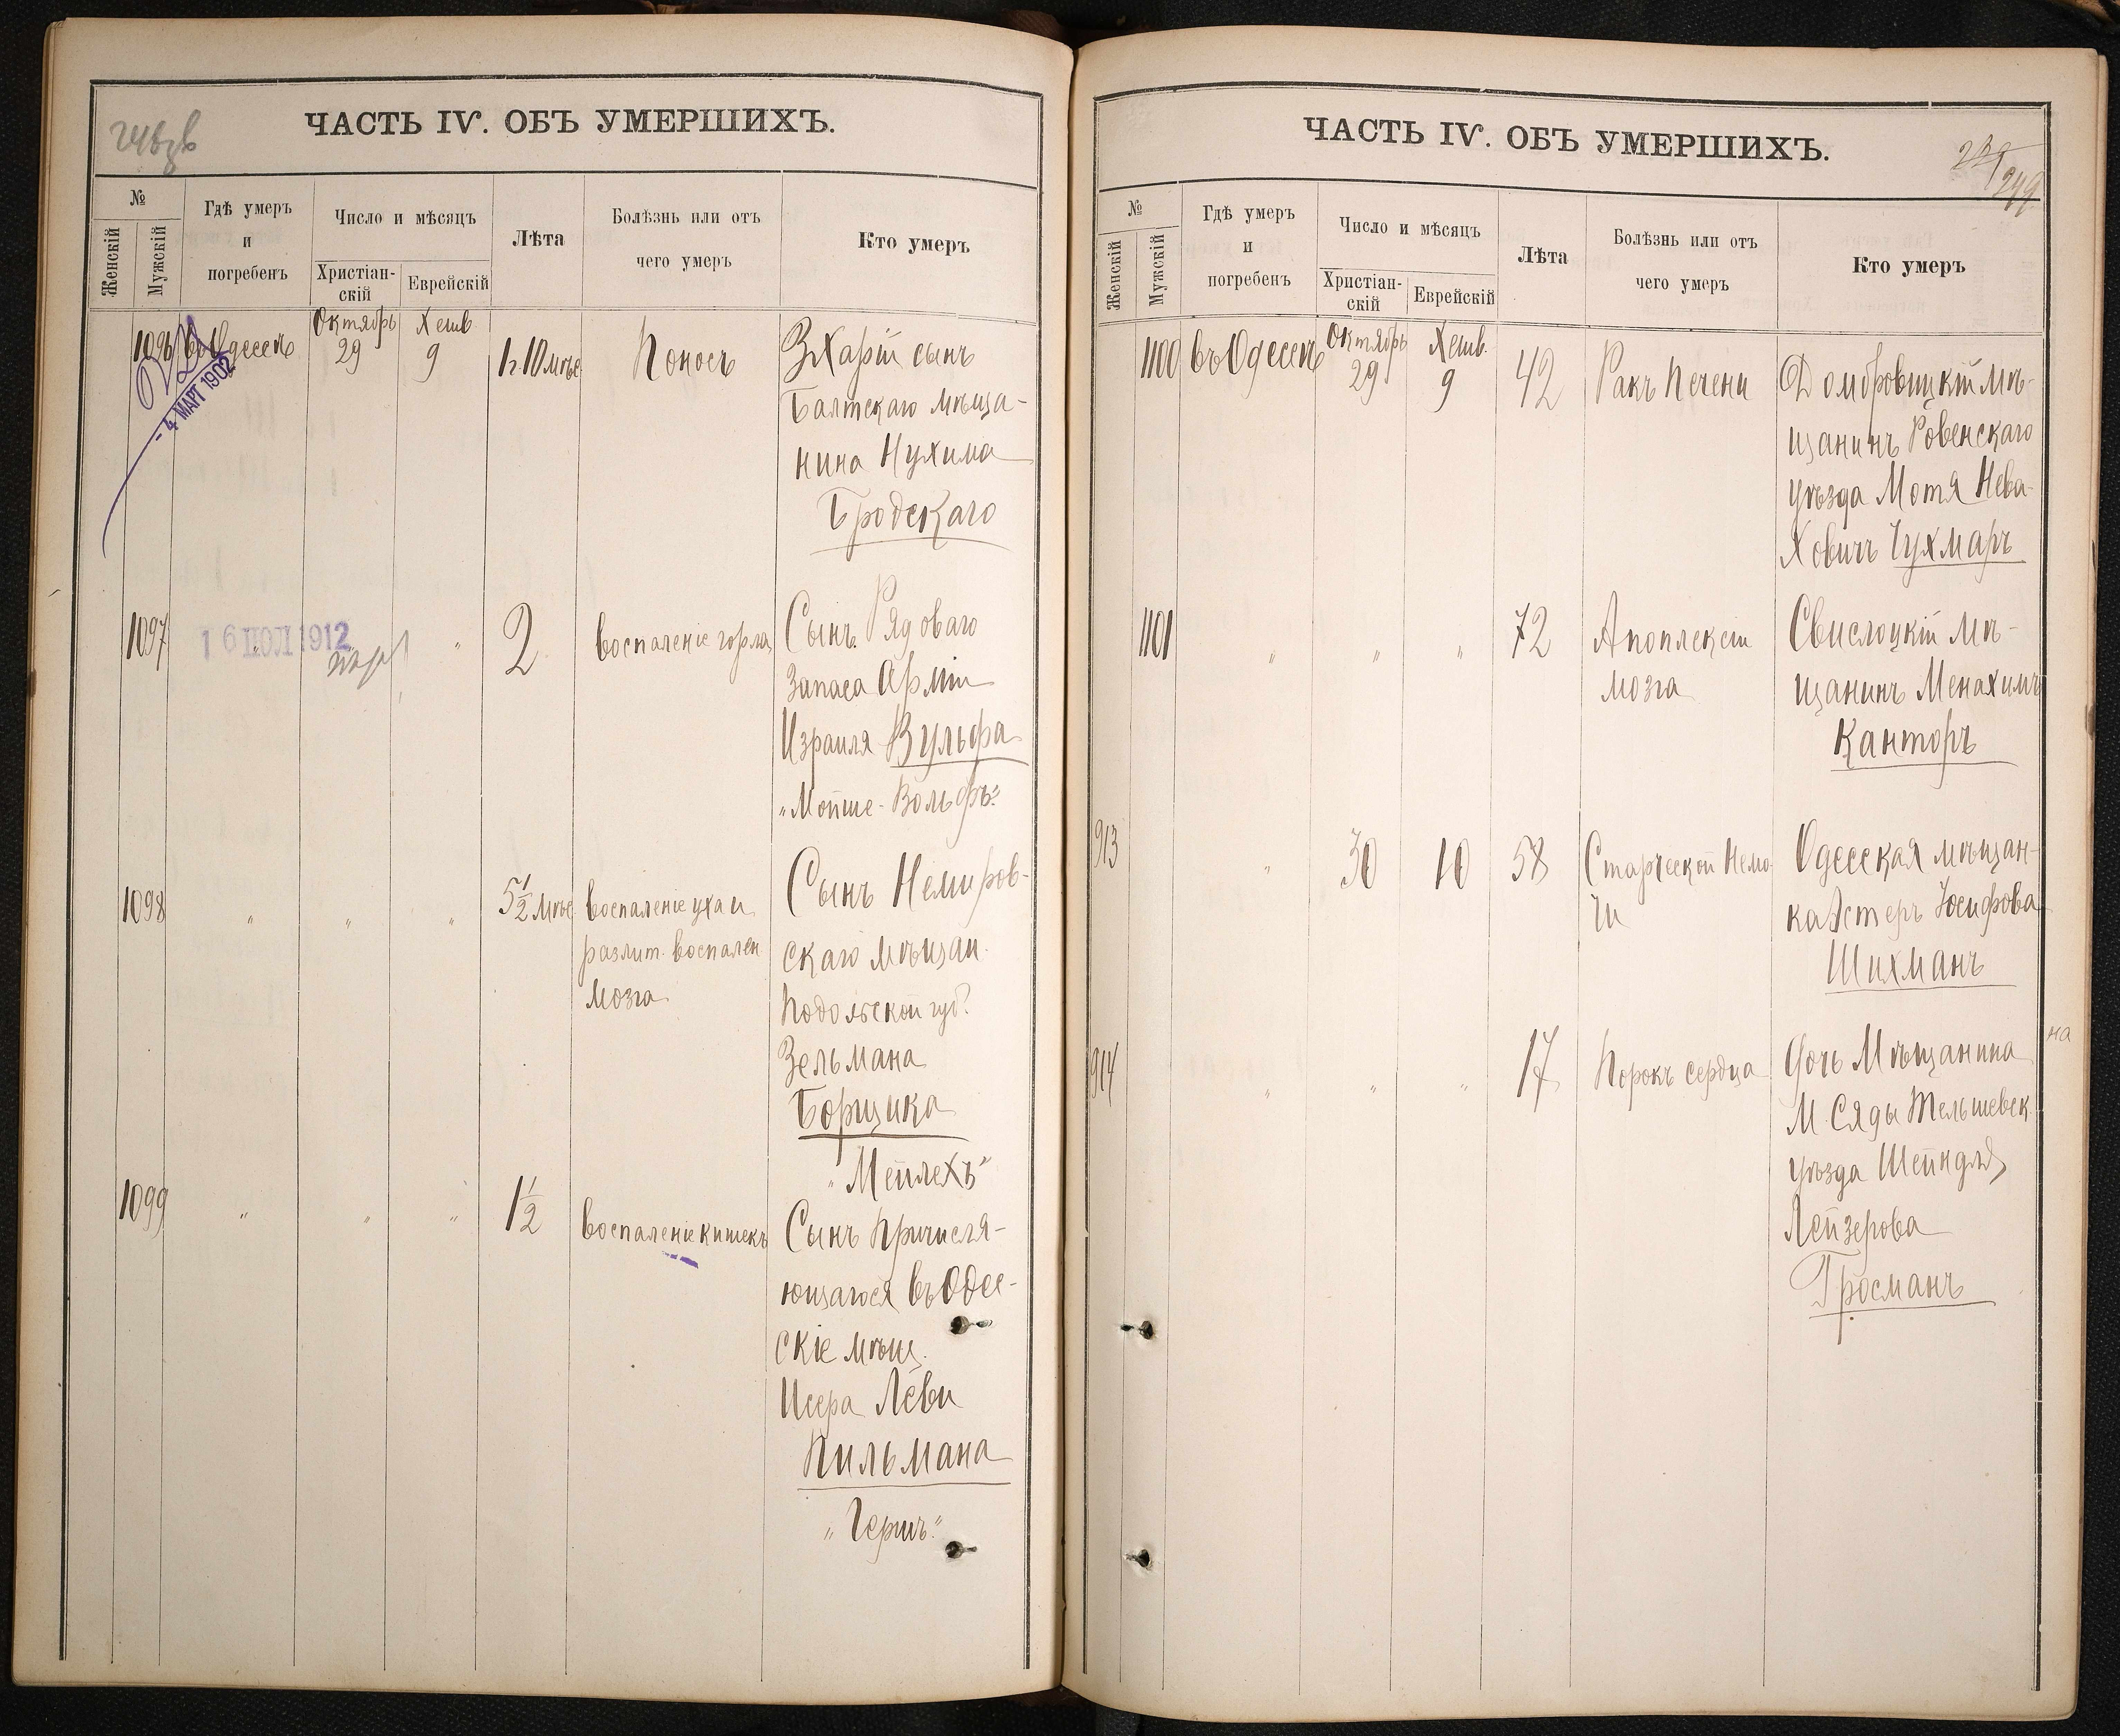 ЧАСТЬ IV. ОБЪ УМЕРШИХЪ.
№
Женскій
Мужскій
Гдѣ умеръ
и
погребенъ
Число и мѣсяцъ
Христіан-
скій
Еврейскій
Лѣта
Болѣзнь или отъ
чего умеръ
Кто умеръ
1096 въ Одессѣ Октябрь 29 Хешв. 9 1 г. 10 мѣс Поносъ Зхарій сынъ
Балтскаго мѣща-
нина Нухима
Бродскаго
- 4 МАРТ 1902
1097 " 2 воспаленіе горла Сынъ Рядоваго
16 ІЮЛ 1912
Запаса Арміи
Израиля Вульфа
"Мойше-Вольфъ"
1098 " " " 5 1/2 мѣс воспаленіе уха и Сынъ Немиров-
разлит. воспален. скаго мѣщан.
мозга Подольской губ.
Зельмана
Борщика
"Мейлехъ"
1099 " " " 1 1/2 воспаленіе кишекъ Сынъ Причисля-
ющагося въ Одес-
скіе мѣщ.
Исера Леви
Пильмана
"Гершъ"
ЧАСТЬ IV. ОБЪ УМЕРШИХЪ.
249
№
Женскій
Мужскій
Гдѣ умеръ
и
погребенъ
Число и мѣсяцъ
Христіан-
скій
Еврейскій
Лѣта
Болѣзнь или отъ
чего умеръ
Кто умеръ
1100 въ Одессѣ Октябрь 29 Хешв. 9 42 Ракъ Печени Домбровицкій мѣ-
щанинъ Ровенскаго
уѣзда Мотя Нева-
ховичъ Чухмаръ
1101 " " " 72 Апоплексіи Свислоцкій мѣ-
мозга щанинъ Менахимъ
Канторъ
913 " 30 10 58 Старческой Немо- Одесская мѣщан-
чи ка Эстеръ Іосифова
Шихманъ
914 " " " 17 Порокъ сердца Дочь Мѣщанина
на
М. Сяды Тельшевск.
уѣзда Шейндля
Лейзерова
Гросманъ